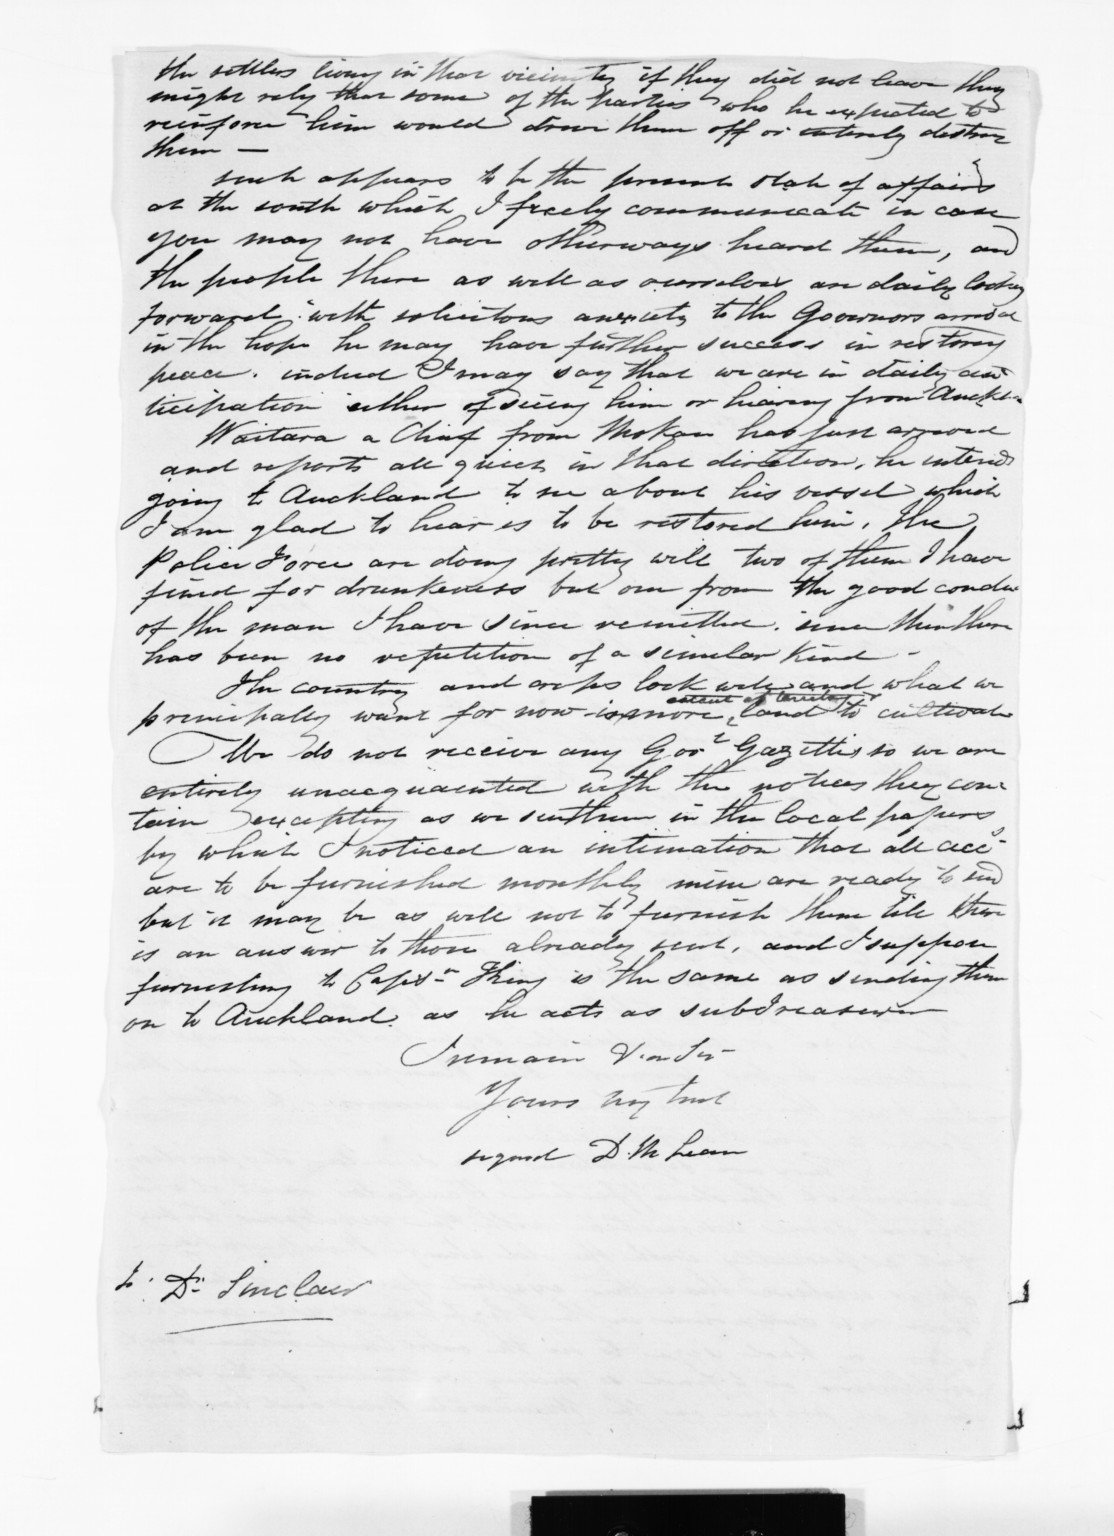 the settlers living in that vicinity if they did not leave they
might rely that some of the parties who he expected to
reinforce him would drive them off or entirely destroy
them —
such appears to be the present state of affairs
at the south which I freely communicate in case
you may not have otherways heard them, and
the people there as well as ourselves are daily looking
forward with solicitous anxiety to the Governors arrival
in the hope he may have further success in restoring
peace. indeed I may say that we are in daily an
ticipation either of seeing him or hearing from Auckln
Waitara a Chief from Mokau has just arrived
and reports all quiet in that direction, he intends
going to Auckland to see about his vessel which
I am glad to hear is to be restored him. The
Police Force are doing pretty well two of them I have
fined for drunkeness but one from the good conduct
of the man I have since remitted. since then there
has been no repetition of a similar kind -
The country and crops look well and what we
extent of territory
principally want for now is more land to cultivate
We do not receive any Govt Gazettes so we are
entirely unacquainted with the notices they con
tain excepting as we see them in the local papers
by which I noticed an intimation that all accs
are to be furnished monthly mine are ready to send
but it may be as well not to furnish them till there
is an answer to those already sent, and I suppose
furnishing to Captn King is the same as sending them
on to Auckland. as he acts as subTreasurer
I remain Dear Sir
Yours very truly
signed D. McLean
To Dr. Sinclair